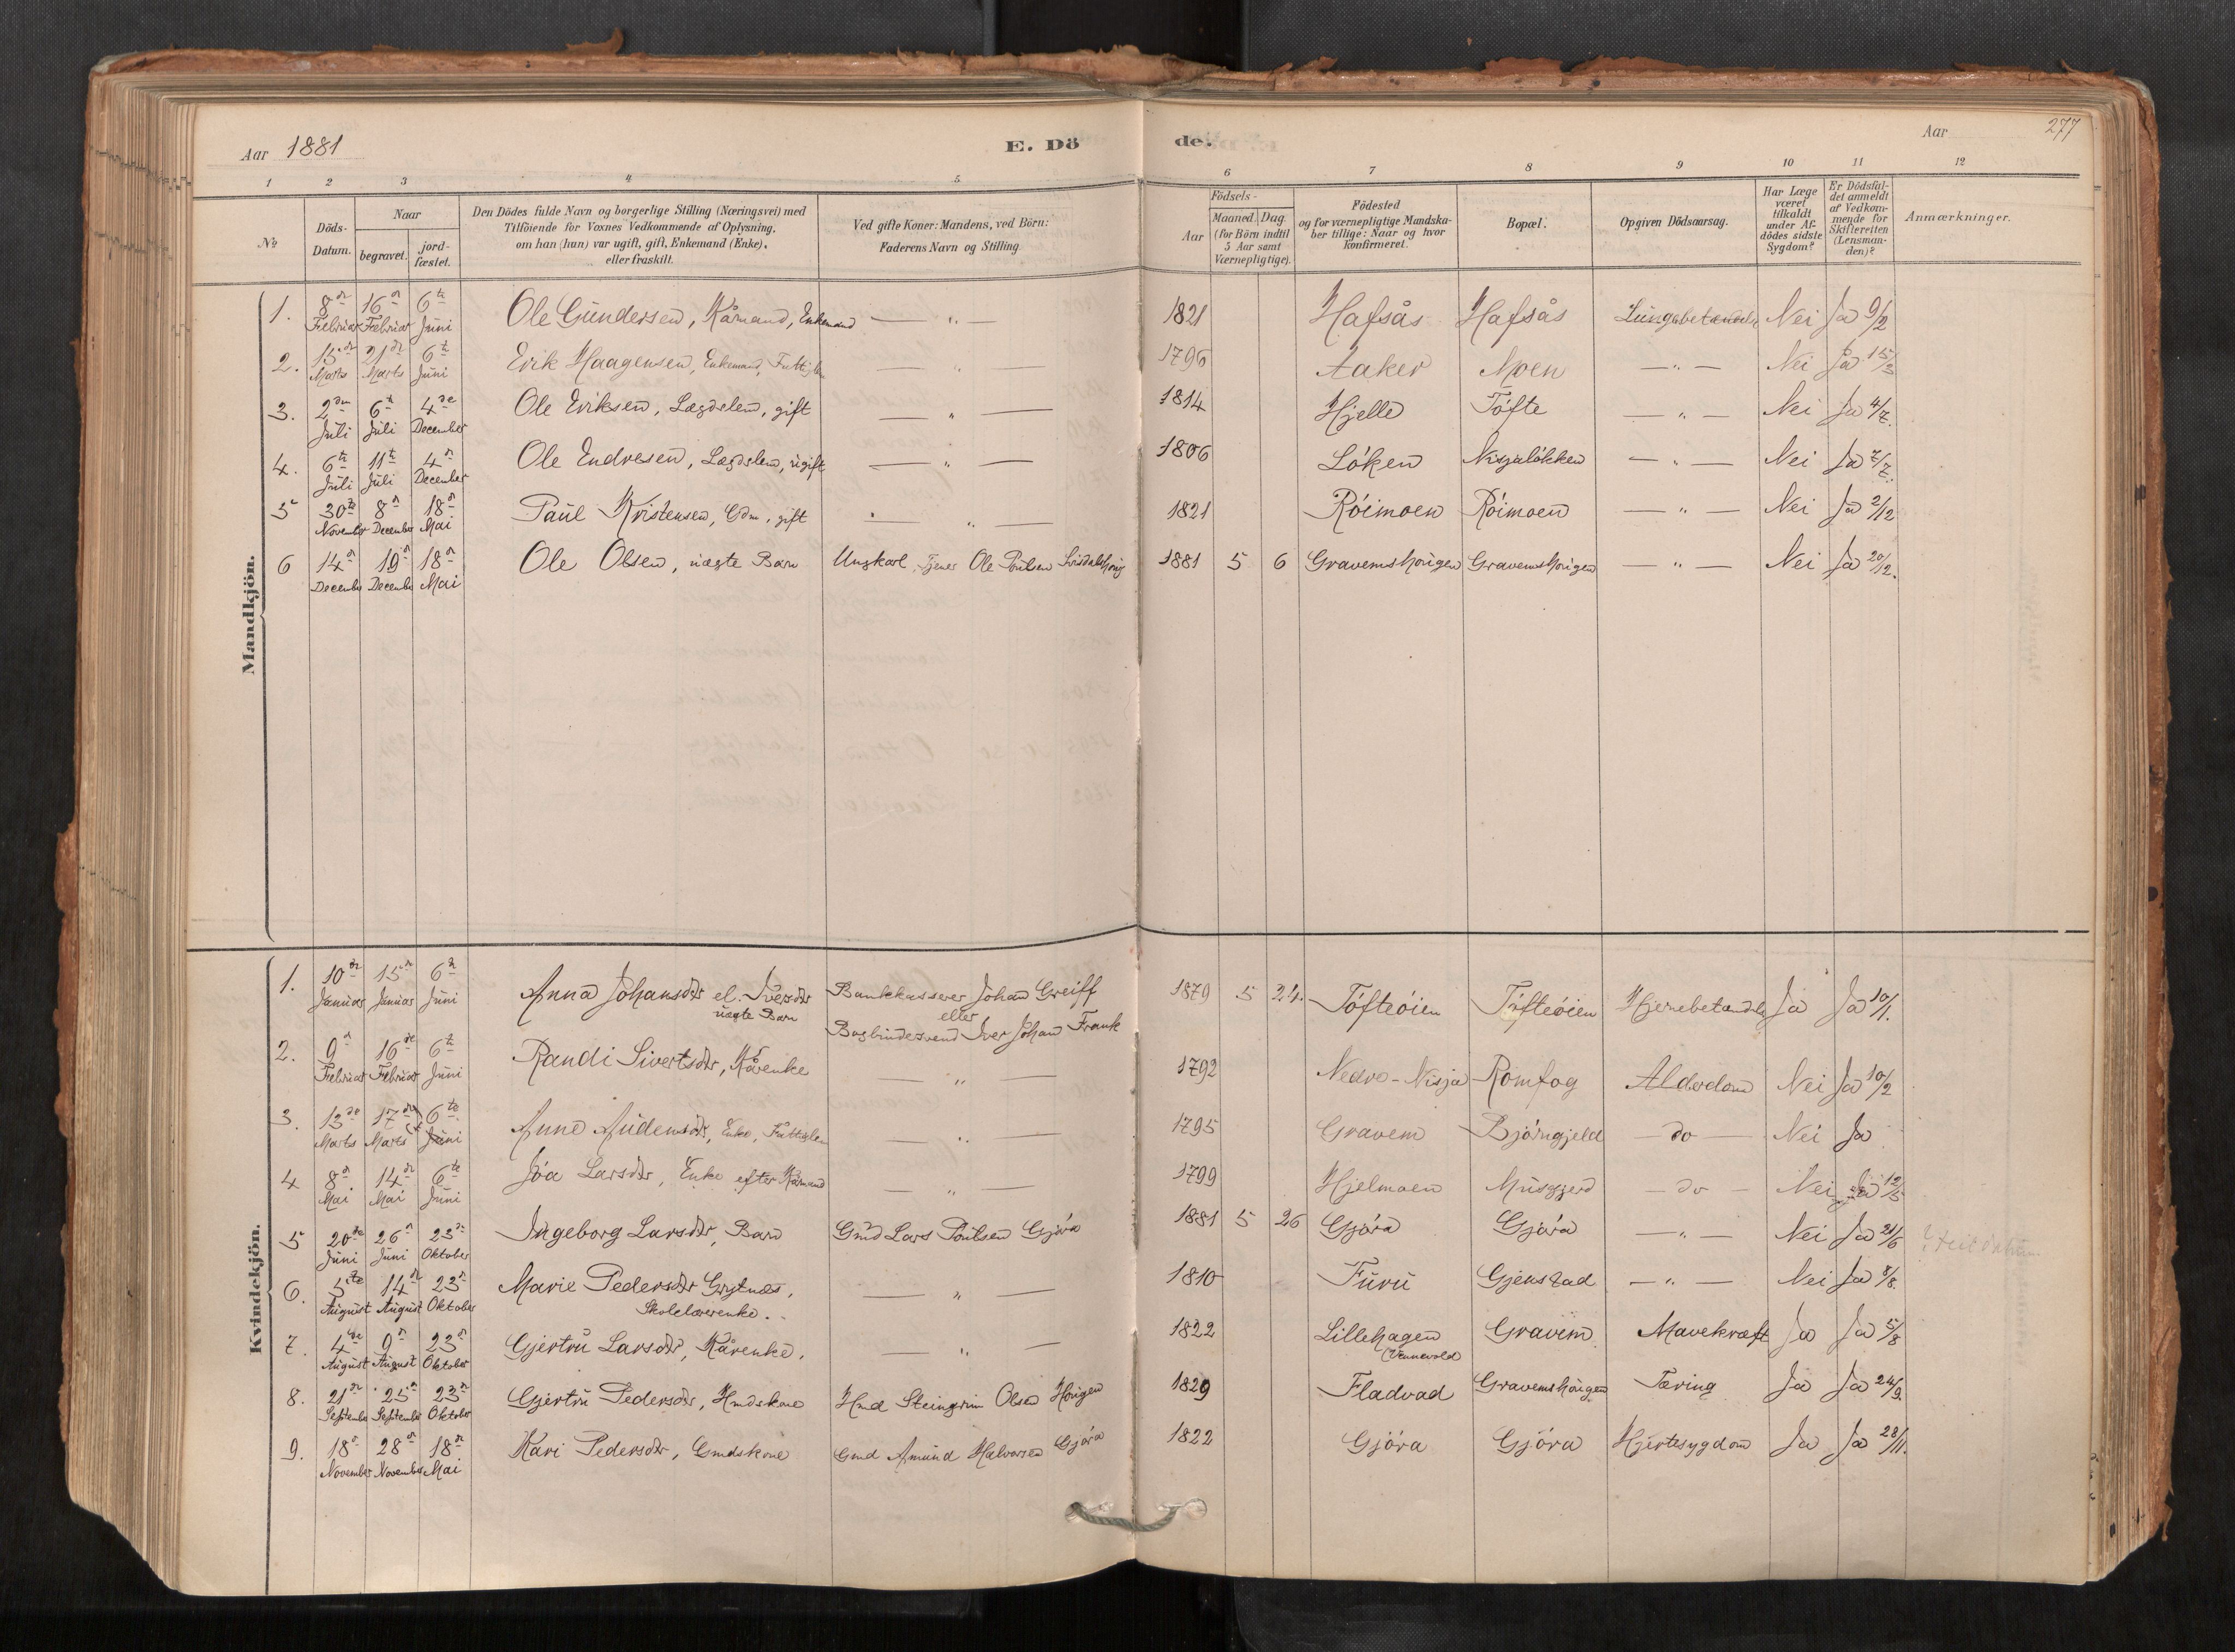 Aar 1881
E. Dö
de.
Aar
277
1 2 3 4 5 6 7 8 9 10 11 12
№
Döds-
Datum.
Naar
begravet.
jord-
fæstet.
Den Dödes fulde Navn og borgerlige Stilling (Næringsvei) med
Tilföiende for Voxnes Vedkommende af Oplysning,
om han (hun) var ugift, gift, Enkemand (Enke),
eller fraskilt.
Ved gifte Koner: Mandens, ved Börn:
Faderens Navn og Stilling.
Födsels-
Aar
Maaned. Dag.
(for Börn indtil
5 Aar samt
Værnepligtige).
Födested
og for værnepligtige Mandska-
ber tillige: Naar og hvor
konfirmeret.
Bopæl.
Opgiven Dödsaarsag.
Har Læge
været
tilkaldt
under Af-
dödes sidste
Sygdom?
Er Dödsfal-
det anmeldt
af Vedkom-
mende for
Skifteretten
(Lensman-
den)?
Anmærkninger.
Mandkjön.
1. 8de Februar 16de Februar 6te Juni Ole Gundersen, Kårmand, Enkemand — " — 1821 Hafsås Hafsås Lungebetændelse Nei Ja 9/2
2. 15de Marts 21de Marts 6te Juni Erik Haagensen, Enkemand, Fattiglem — " — 1796 Aaker Moen — " — Nei Ja 15/3
3. 2den Juli 6te Juli 4de December Ole Eriksen, Lægdslem, gift — " — 1814 Hjelle Tófte — " — Nei Ja 4/7.
4. 6te Juli 11te Juli 4de December Ole Endresen, Lægdslem, ugift — " — 1806 Lóken Nisjalökken — " — Nei Ja 7/7.
5 30te November 8de December 18de Mai Paul Kristensen, Gdm, gift — " — 1821 Róimoen Róimoen — " — Nei Ja 2/12
6 14de December 19de December 18de Mai Ole Olsen, uægte Barn Ungkarl, Tjener Ole Poulsen 1881 5 6 Gravemshaugen Gravemshaugen — " — Nei Ja 20/12.
Kvindekjön.
1. 10de Januar 15de Januar 6te Juni Anna Johansdtr el. Iversdtr Bankkasserer Johan Greiff 1879 5 24. Tófteóien Tófteóien Hjernebetændelse Ja Ja 10/1.
uægte Barn eller
Bogbindersvend Iver Johan Frank
2. 9de Februar 16de Februar 6te Juni Randi Sivertsdtr, Kårenke — " — 1792 Nedre-Nisja Romfog Alderdom Nei Ja 10/2
3. 13de Marts 17de Marts 6te Juni Anne Audensdtr, Enke, Fattiglem — " — 1795 Gravem Bjórngjeld — do — Nei Ja
4 8de Mai 14de Mai 6te Juni Jóa Larsdtr, Enke efter Kårmand — " — 1799 Hjelmoen Musgjerd — do — Nei Ja 12/5
5 20de Juni 26de Juni 23de Oktober Ingeborg Larsdtr, Barn Gmd Lars Poulsen Gjóra 1881 5 26 Gjóra Gjóra — " — Nei Ja 21/6
6. 5te August 14de August 23de Oktober Marie Pedersdtr Grytnes, — " — 1810 Furu Gjenstad — " — Nei Ja 8/8.
Skolelærerenke.
7. 4de August 9de August 23de Oktober Gjertru Larsdtr, Kårenke, — " — 1822 Lillehagen Gravem Mavekræft Ja Ja 5/8
(Vennevold)
8. 21de September 25de September 23de Oktober Gjertru Pedersdtr, Hmdskone Hmd Steingrim Olsen Haugen 1829 Fladvad Gravemshaugen Tæring Ja Ja 24/9.
9. 18de November 28de November 18de Mai Kari Pedersdtr, Gmdskone Gmd Amund Halvorsen Gjóra 1822 Gjóra Gjóra Hjertesygdom Ja Ja 28/11.